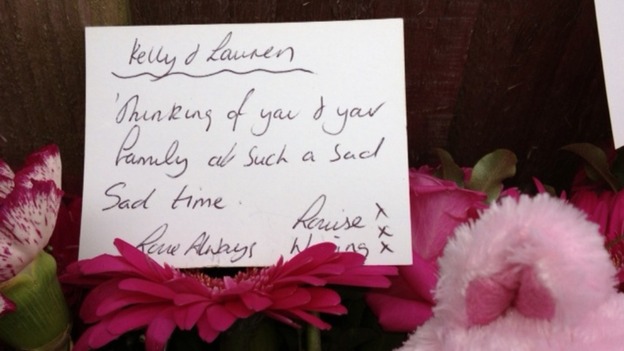 Kelly & Lauren
Thinking of you & your
family at such a sad
Sad time.
Love Always Louise x
x
x